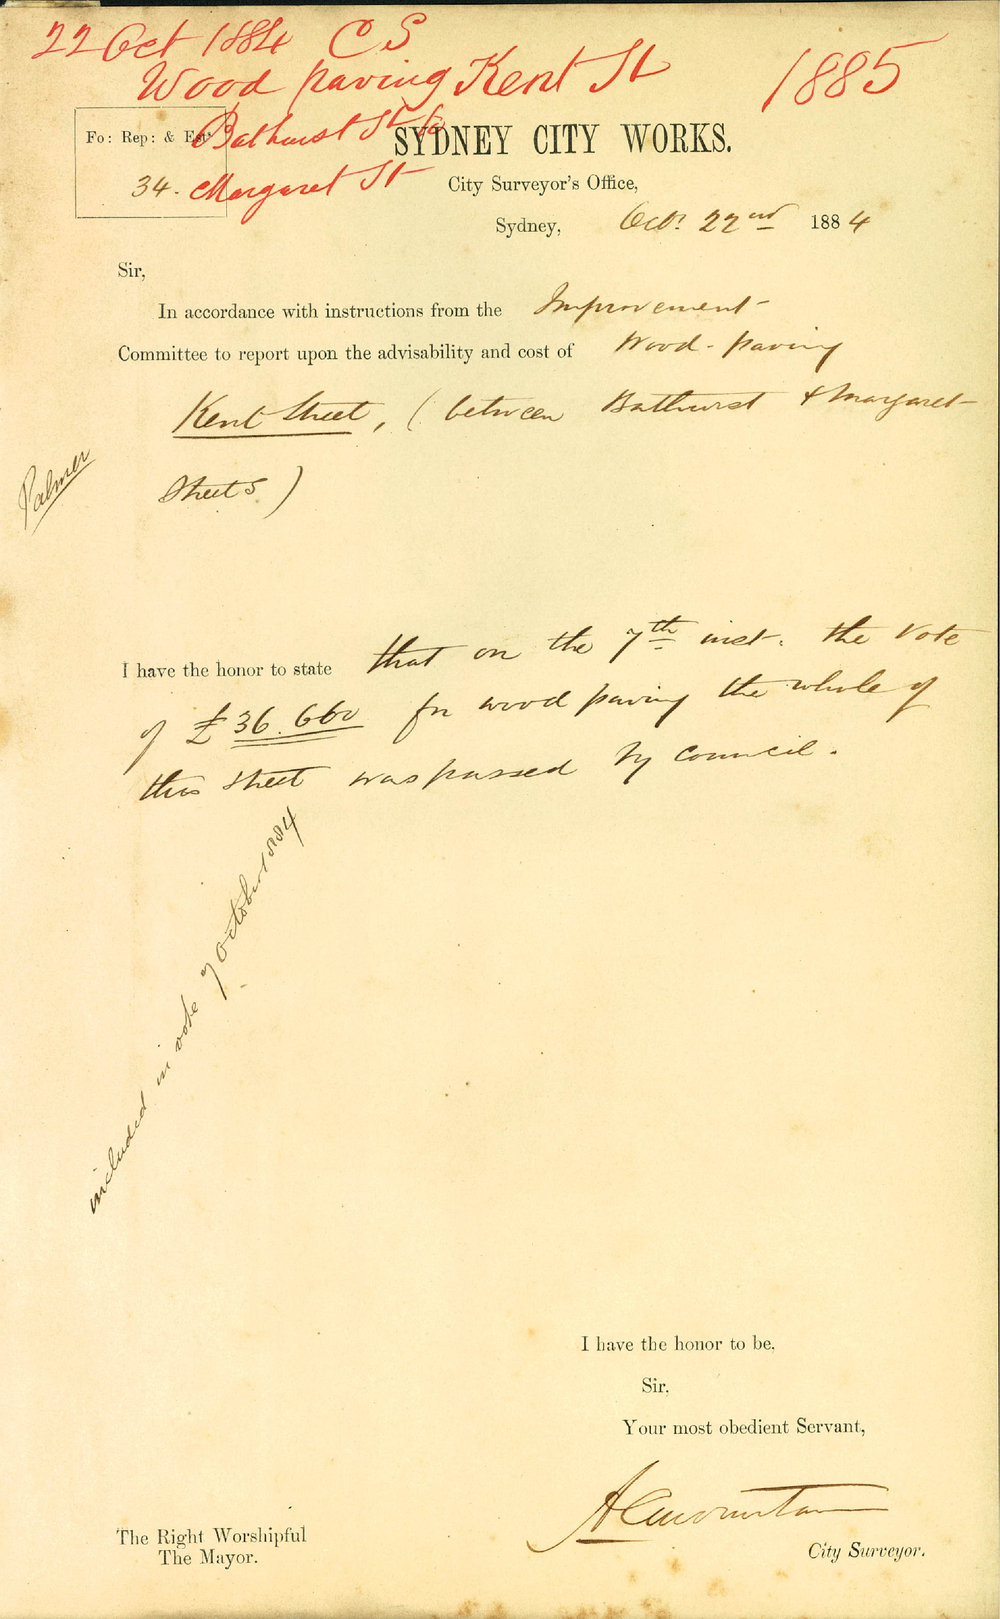 22 Oct 1884 C S
Wood paving Kent St
1885
Bathurst St to
Margaret St
Fo: Rep: & Est:
34.
SYDNEY CITY WORKS.
City Surveyor's Office,
Sydney, Octr. 22nd 1884
Sir,
In accordance with instructions from the Improvement
Committee to report upon the advisability and cost of Wood-paving
Kent Street, (between Bathurst & Margaret
Streets)
Palmer
I have the honor to state that on the 7th inst. the Vote
of £36.660 for wood paving the whole of
this street was passed by Council.
included in vote 7 October 1884
I have the honor to be,
Sir,
Your most obedient Servant,
City Surveyor.
The Right Worshipful
The Mayor.